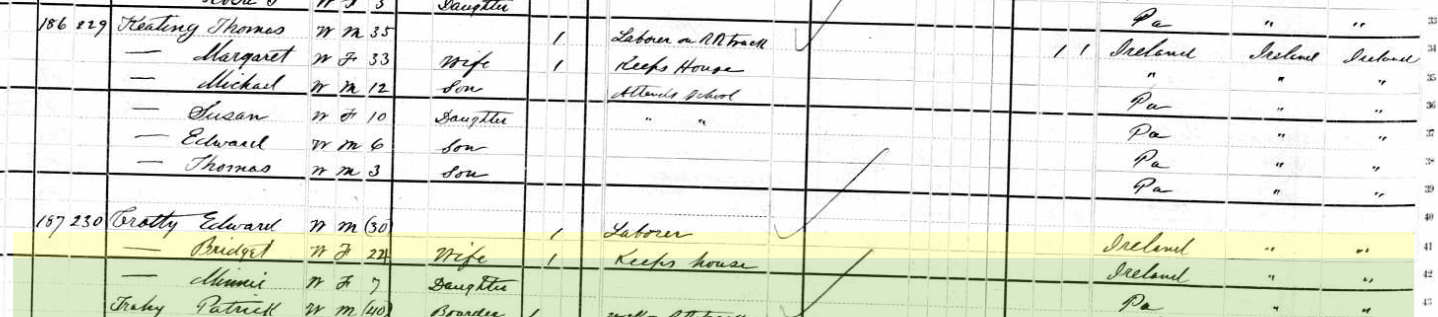 Daughter Pa " " 33
186 229 Keating Thomas W M 35 1 Laborer on RR track 1 1 Ireland Ireland Ireland 34
— Margaret W F 33 Wife 1 Keeps House " " " 35
— Michael W M 12 Son Attends School Pa " " 36
— Susan W F 10 Daughter " " Pa " " 37
— Edward W M 6 Son Pa " " 38
— Thomas W M 3 Son Pa " " 39
40
187 230 Crotty Edward W M (30) 1 Laborer Ireland " " 41
— Bridget W F 24 Wife 1 Keeps house Ireland " " 42
— Minnie W F 7 Daughter Pa " " 43
Patrick W M (40) Boarder 1